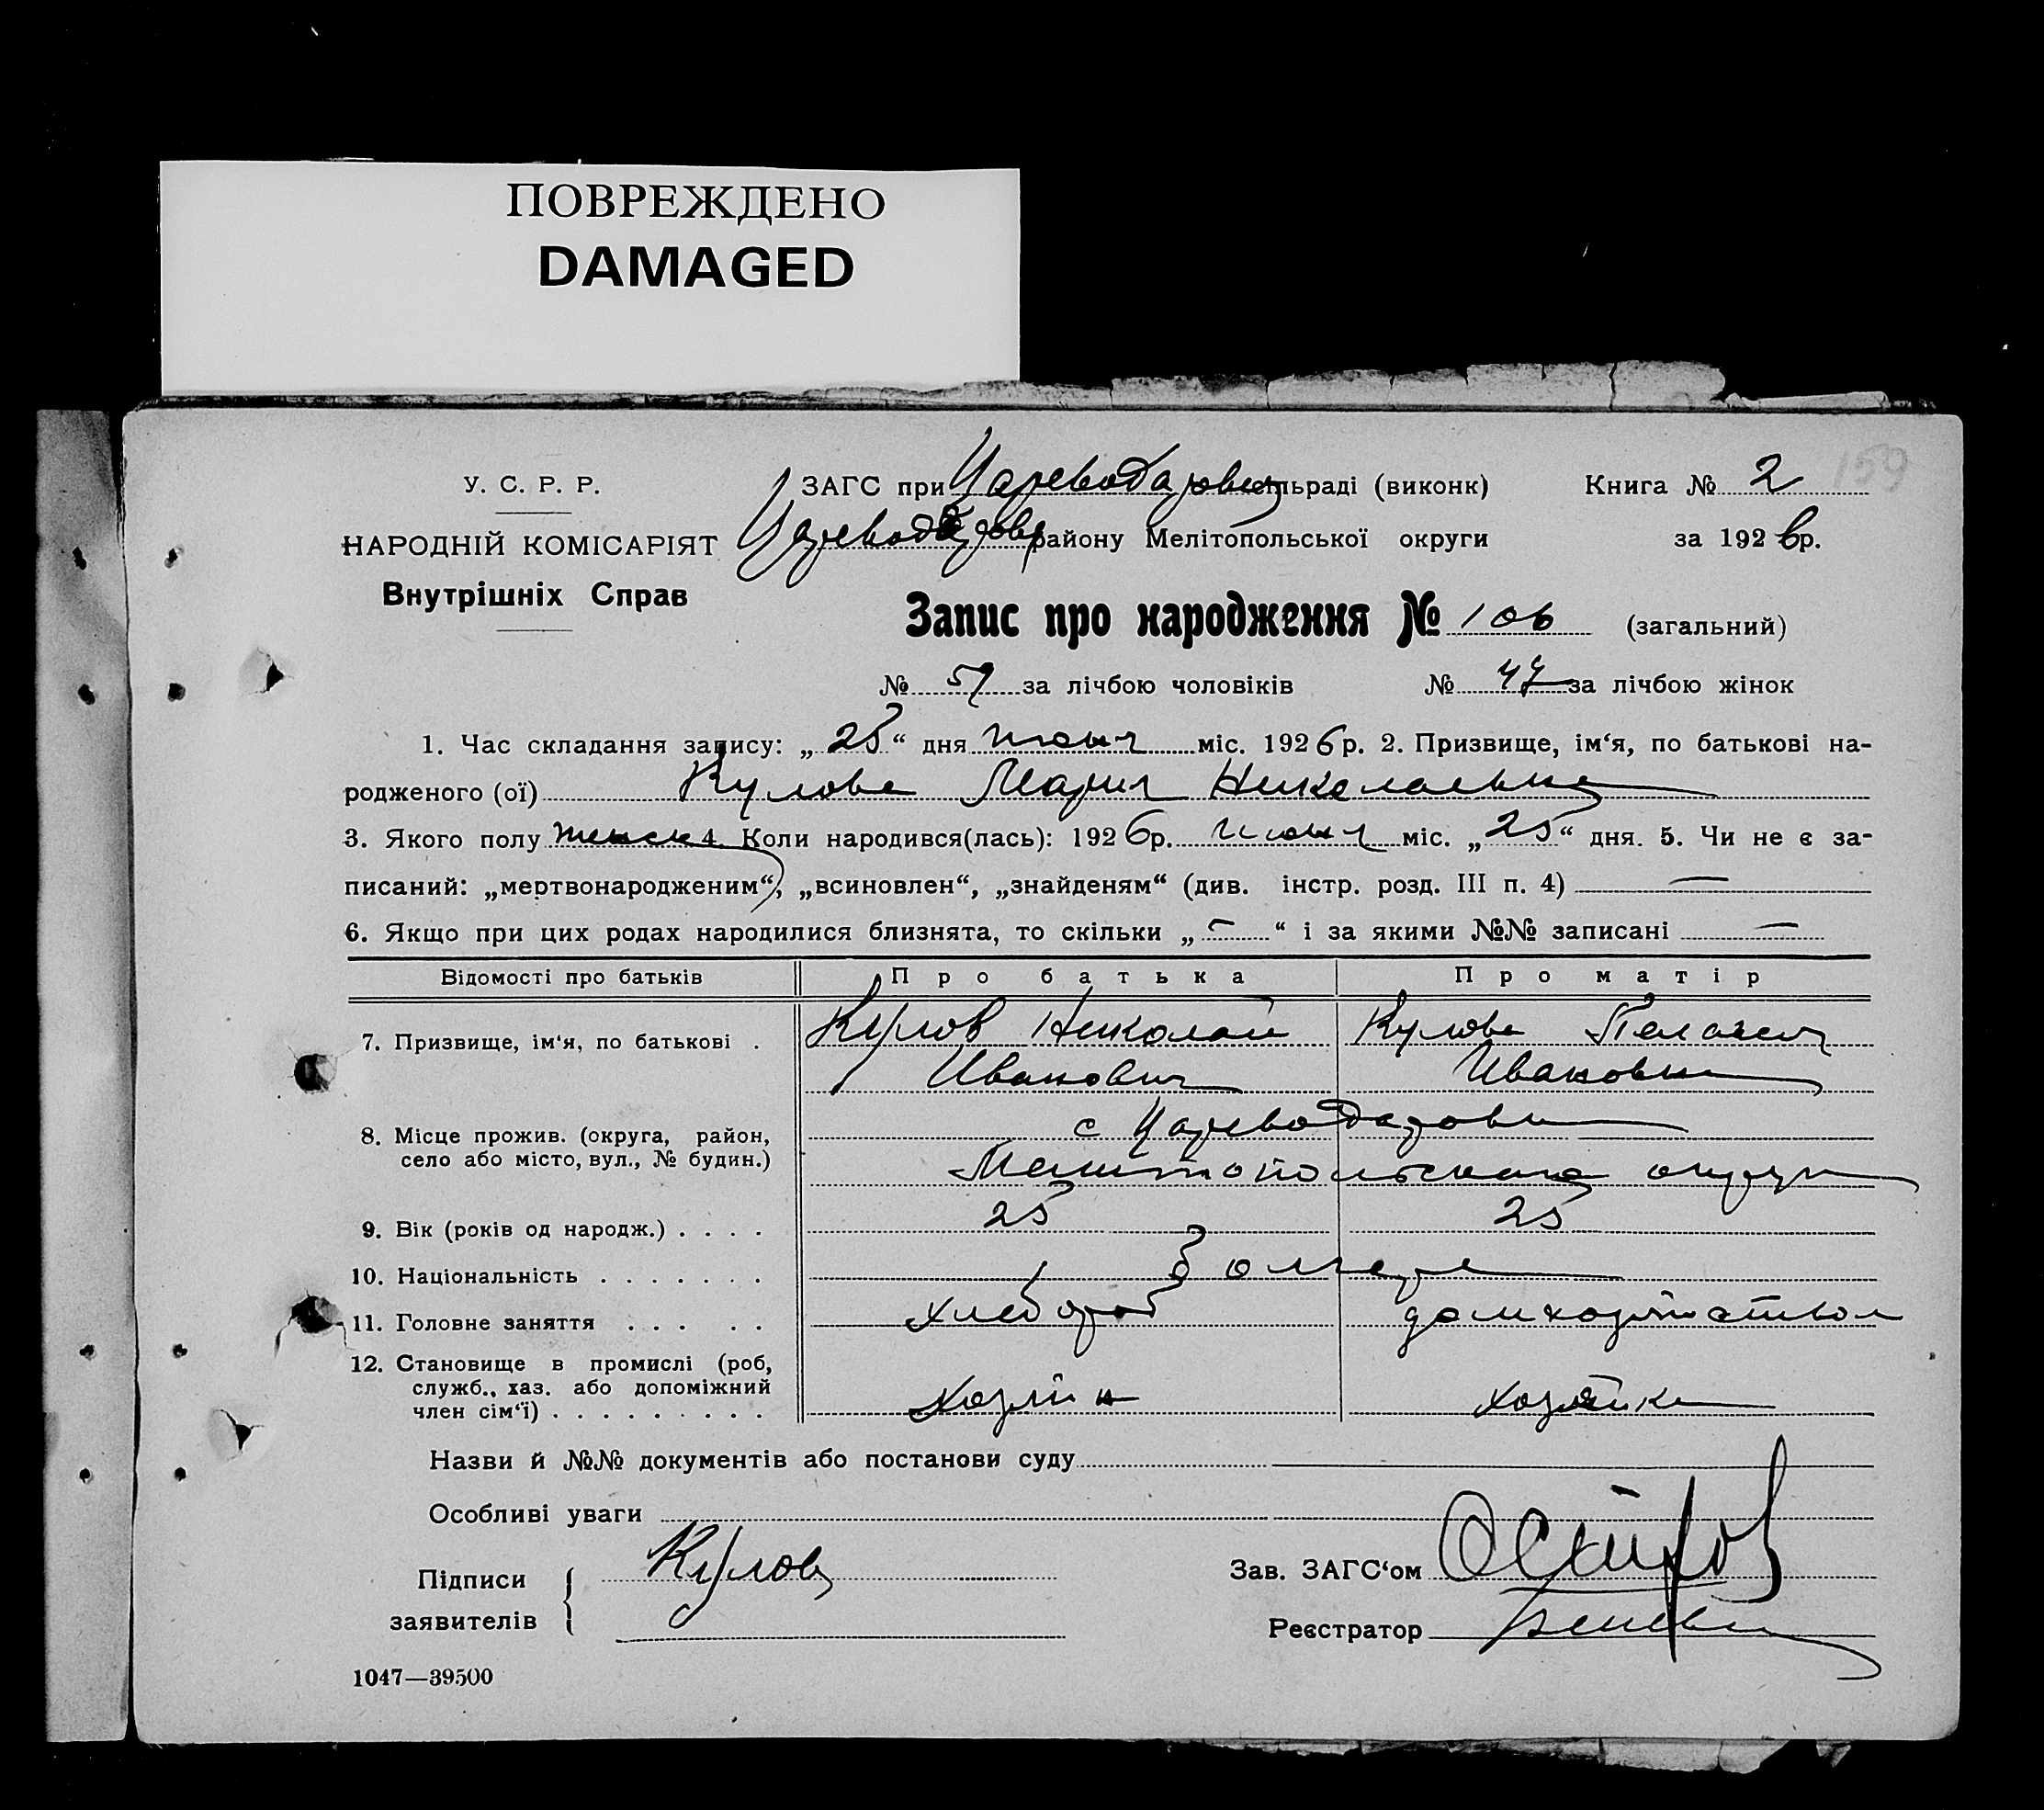 ПОВРЕЖДЕНО
DAMAGED
159
У. С. Р. Р.
НАРОДНІЙ КОМІСАРІЯТ
Внутрішніх Справ
ЗАГС при Царевода ровск сільраді (виконк)
Книга № 2
Цареводаровск району Мелітопольської округи
за 1926 р.
Запис про народження № 106 (загальний)
№ 59 за лічбою чоловіків № 47 за лічбою жінок
1. Час складання запису: „25“ дня июня міс. 1926 р. 2. Призвище, ім‘я, по батькові на-
родженого (ої) Кулова Мария Николаевна
3. Якого полу женск 4. Коли народився(лась): 1926 р. июня міс. „25“ дня. 5. Чи не є за-
писаний: „мертвонародженим“, „всиновлен“, „знайденям“ (див. інстр. розд. III п. 4) —
6. Якщо при цих родах народилися близнята, то скільки „—“ і за якими №№ записані —
Відомості про батьків Про батька Про матір
7. Призвище, ім‘я, по батькові . Кулов Николай Кулова Пелагея
Иванович Ивановна
8. Місце прожив. (округа, район, с Цареводаровка
село або місто, вул., № будин.) Мелитопольского округа
9. Вік (років од народж.) . . . . 25 25
10. Національність . . . . . . . болгаре
11. Головне заняття . . . . . хлебороб домхозяйством
12. Становище в промислі (роб,
служб., хаз. або допоміжний хозяин хозяйка
член сім‘ї) . . . . . . . . .
Назви й №№ документів або постанови суду
Особливі уваги
Підписи Кулов
заявителів
Зав. ЗАГС‘ом
Реєстратор
1047—39500